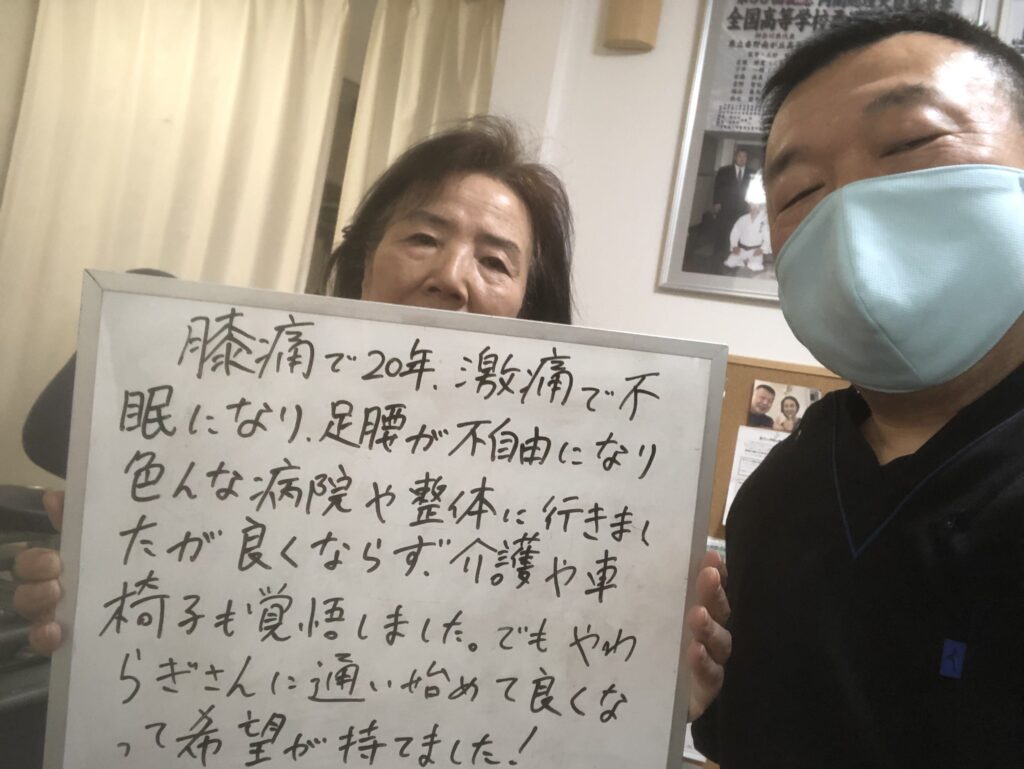 全国高等学校
膝痛で20年、激痛で不
眠になり、足腰が不自由になり
色んな病院や整体に行きまし
たが良くならず、介護や車
椅子も覚悟しました。でもやわ
らぎさんに通い始めて良くな
って希望が持てました!